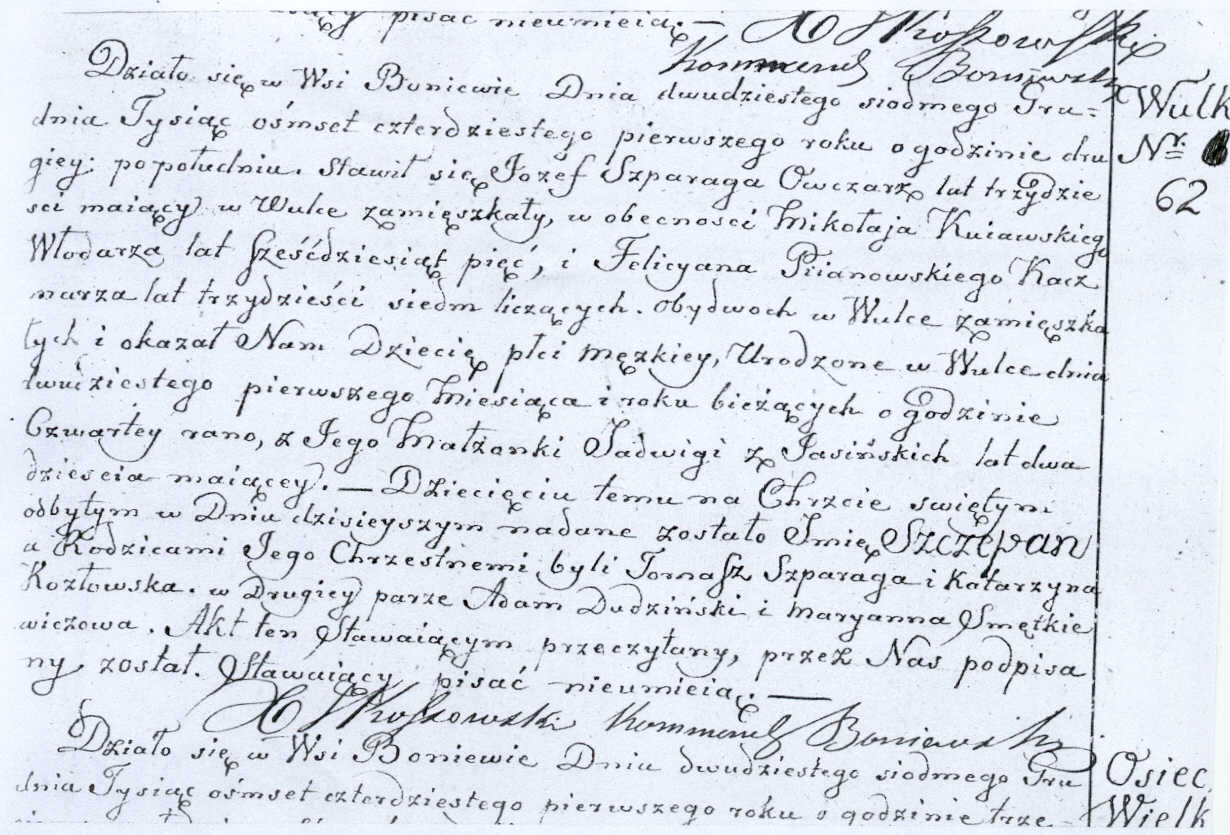 pisać nieumieią. —
Kommend Boniewski
Działo się w Wsi Boniewie Dnia dwudziestego siodmego Gru=
dnia Tysiąc ośmset czterdziestego pierwszego roku o godzinie dru
giey po południu. Stawił się Jozef Szparaga Owczarz lat trzydzie
sci maiący w Wulce zamięszkały, w obecnosci Mikołaja Kuiawskiego
Włodarza lat sześćdziesiąt pięć, i Felicyana Piianowskiego Kacz
marza lat trzydzieści siedm liczących. obydwoch w Wulce zamięszka
łych i okazał Nam Dziecię płci męzkiey, Urodzone w Wulce dnia
dwudziestego pierwszego Miesiąca i roku bieżących o godzinie
Czwartey rano, z Jego Małżonki Jadwigi z Jasińskich lat dwa
dziescia maiącey. — Dziecięciu temu na Chrzcie swiętym
odbytym w Dniu dzisieyszym nadane zostało Imię Szczepan
a Rodzicami Jego Chrzestnemi byli Tomasz Szparaga i Katarzyna
Kozłowska. w Drugiey parze Adam Dudziński i Maryanna Smętkie
wiczowa. Akt ten Stawaiącym przeczytany, przez Nas podpisa
ny został. Stawaiący pisać nieumieią. —
Kommend Boniewski
Działo się w Wsi Boniewie Dnia dwudziestego siodmego Gru
dnia Tysiąc ośmset czterdziestego pierwszego roku o godzinie trze
Wulk
Nr.
62
Osiec
Wielk